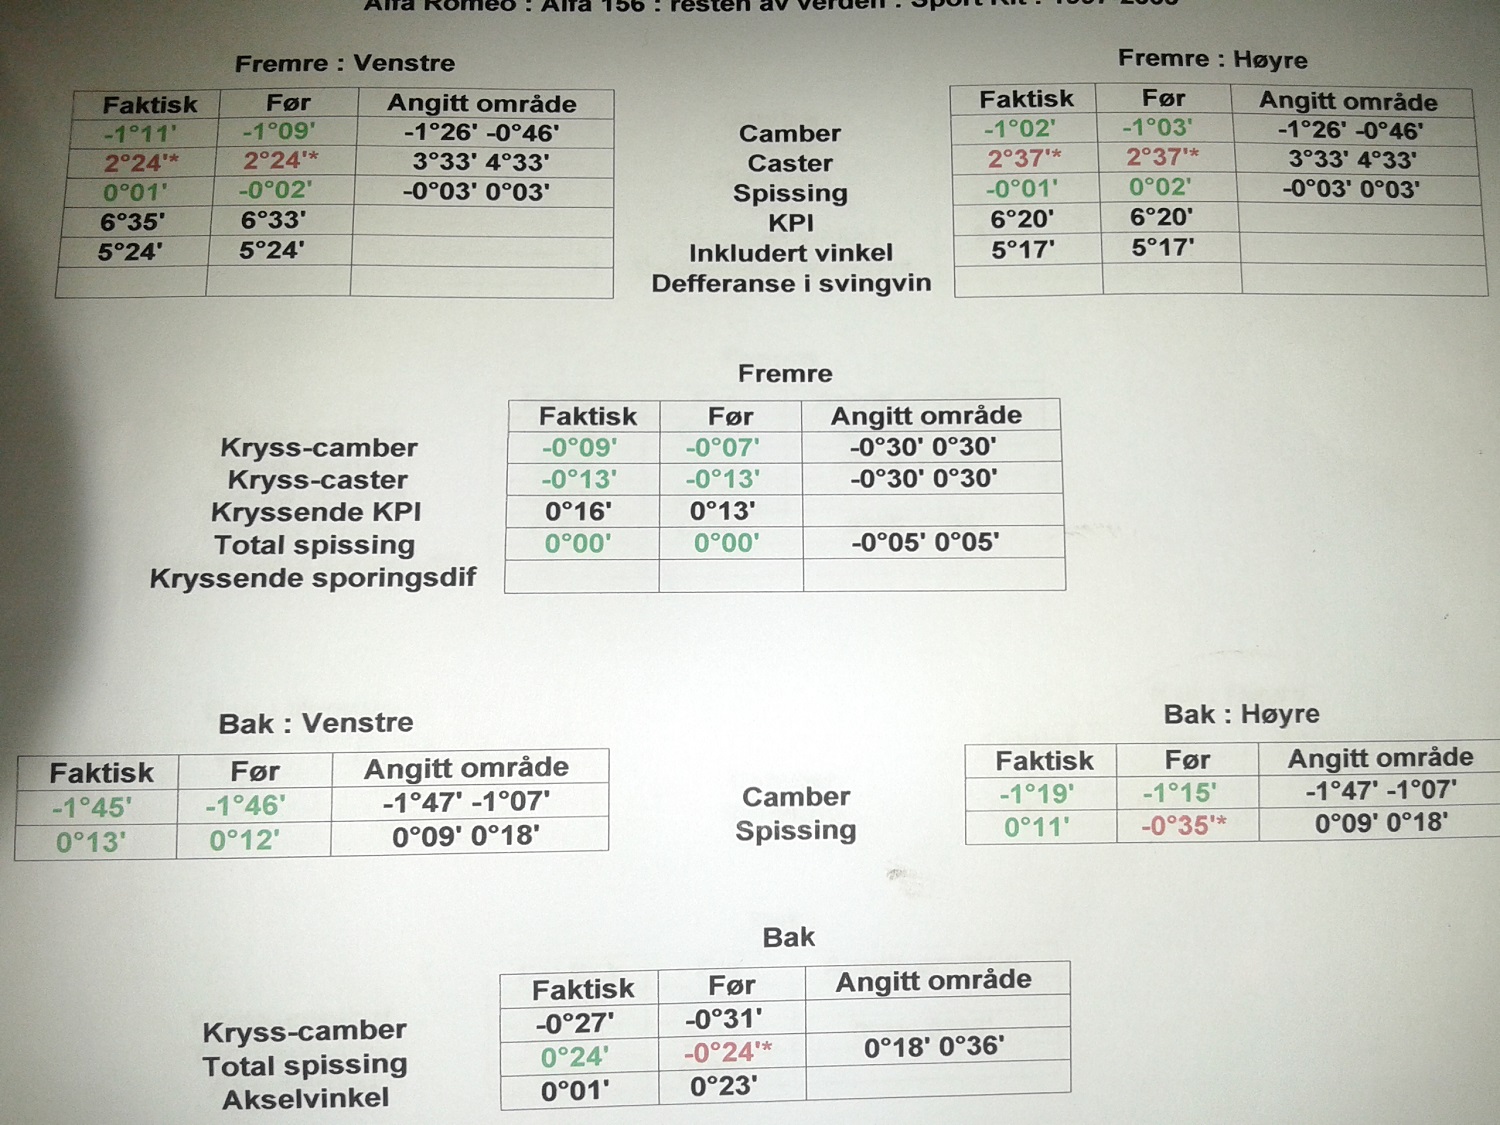 Alfa Romeo : Alfa 156 : resten av verden : Sport Kit : 1997-2005
Fremre : Venstre
Faktisk Før Angitt område
-1°11' -1°09' -1°26' -0°46'
2°24'* 2°24'* 3°33' 4°33'
0°01' -0°02' -0°03' 0°03'
6°35' 6°33'
5°24' 5°24'
Camber
Caster
Spissing
KPI
Inkludert vinkel
Defferanse i svingvin
Fremre : Høyre
Faktisk Før Angitt område
-1°02' -1°03' -1°26' -0°46'
2°37'* 2°37'* 3°33' 4°33'
-0°01' 0°02' -0°03' 0°03'
6°20' 6°20'
5°17' 5°17'
Fremre
Faktisk Før Angitt område
Kryss-camber -0°09' -0°07' -0°30' 0°30'
Kryss-caster -0°13' -0°13' -0°30' 0°30'
Kryssende KPI 0°16' 0°13'
Total spissing 0°00' 0°00' -0°05' 0°05'
Kryssende sporingsdif
Bak : Venstre
Faktisk Før Angitt område
-1°45' -1°46' -1°47' -1°07'
0°13' 0°12' 0°09' 0°18'
Camber
Spissing
Bak : Høyre
Faktisk Før Angitt område
-1°19' -1°15' -1°47' -1°07'
0°11' -0°35'* 0°09' 0°18'
Bak
Faktisk Før Angitt område
Kryss-camber -0°27' -0°31'
Total spissing 0°24' -0°24'* 0°18' 0°36'
Akselvinkel 0°01' 0°23'